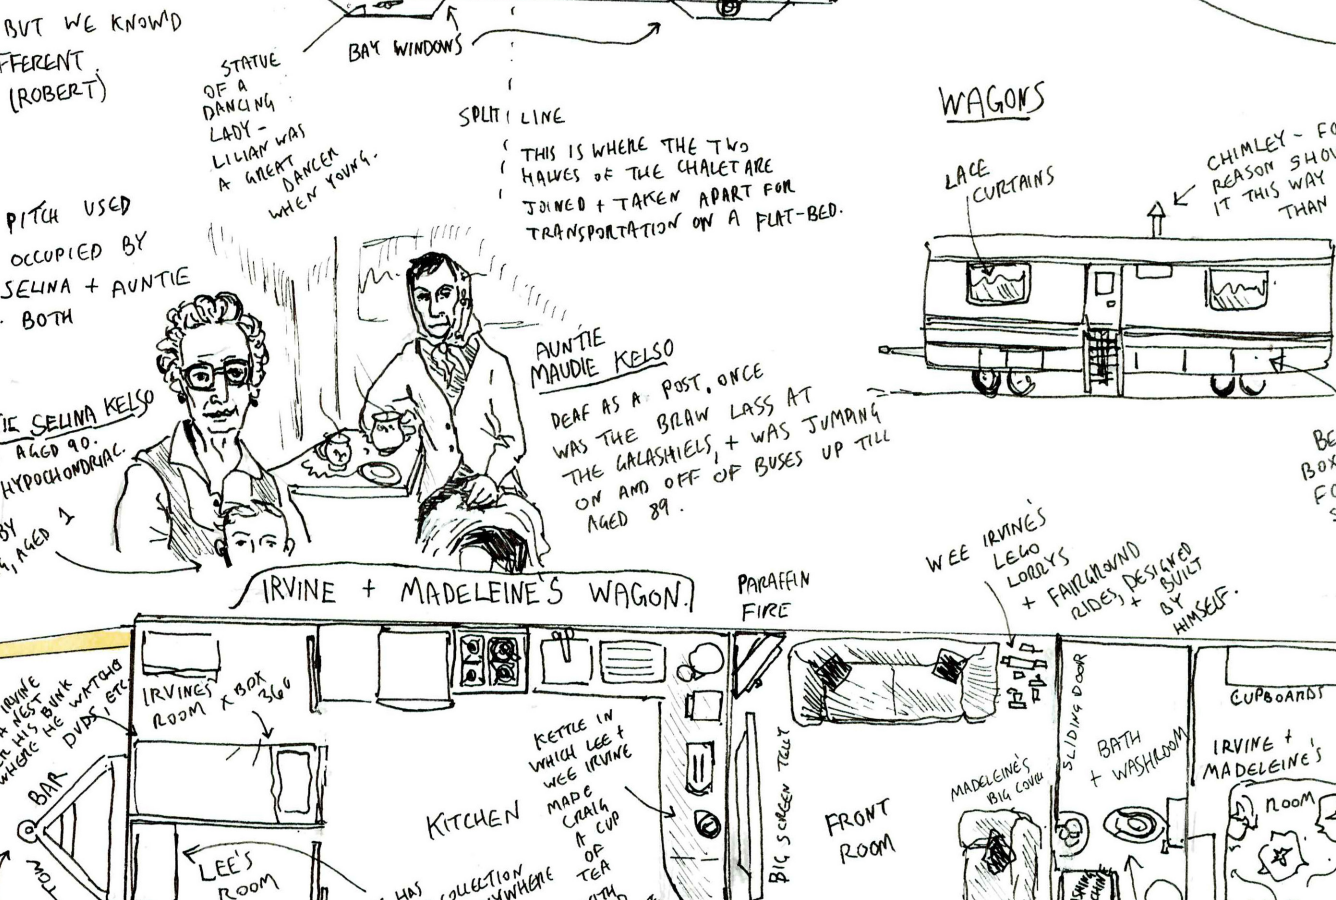 BUT WE KNOW'D
FFERENT.
(ROBERT)
STATUE
OF A
DANCING
LADY -
LILIAN WAS
A GREAT
DANCER
WHEN YOUNG.
BAY WINDOWS
SPLIT LINE
THIS IS WHERE THE TWO
HALVES OF THE CHALET ARE
JOINED + TAKEN APART FOR
TRANSPORTATION ON A FLAT-BED.
WAGONS
LACE
CURTAINS
CHIMLEY - FO
REASON SHOU
IT THIS WAY
THAN
PITCH USED
OCCUPIED BY
SELINA + AUNTIE
BOTH
IE SELINA KELSO
AGED 90.
HYPOCHONDRIAC.
BY
AGED 1
AUNTIE
MAUDIE KELSO
DEAF AS A POST. ONCE
WAS THE BRAW LASS AT
THE GALASHIELS, + WAS JUMPING
ON AND OFF OF BUSES UP TILL
AGED 89.
BE
BOX
FO
S
IRVINE + MADELEINE'S WAGON.
PARAFFIN
FIRE
WEE IRVINE'S
LEGO
LORRYS
+ FAIRGROUND
RIDES, DESIGNED
+ BUILT
BY
HIMSELF.
IRVINE
A NEST
ER HIS BUNK
WHERE HE WATCHED
DVDS, ETC
IRVINE'S
ROOM
XBOX
360
BAR
TOW
LEE'S
ROOM
KITCHEN
HAS
COLLECTION
YWHERE
KETTLE IN
WHICH LEE +
WEE IRVINE
MADE
CRAIG
A CUP
OF
TEA
WITH
BIG SCREEN TELLY
FRONT
ROOM
MADELEINE'S
BIG COUCH
SLIDING DOOR
BATH
+ WASHROOM
SHING
CHINE
CUPBOARDS
IRVINE +
MADELEINE'S
ROOM